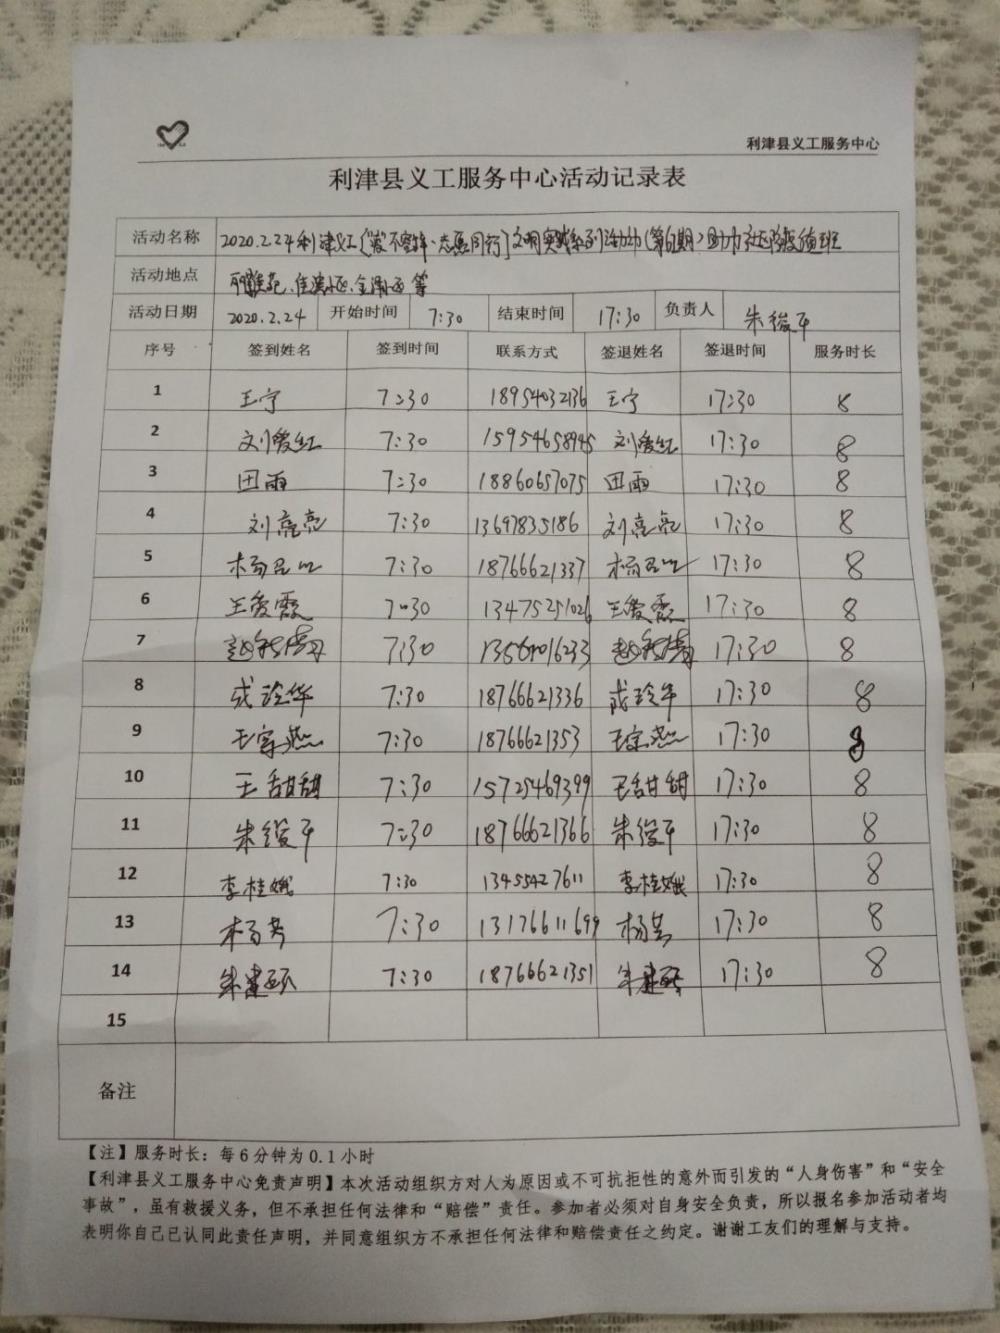 利津县义工服务中心
利津县义工服务中心活动记录表
活动名称 2020.2.24利津义工《爱不容辞·志愿同行》文明实践系列活动 助力社区防疫值班
活动地点 小区、金 小区 等
活动日期 2020.2.24 开始时间 7:30 结束时间 17:30 负责人 朱俊平
序号 签到姓名 签到时间 联系方式 签退姓名 签退时间 服务时长
1 王宁 7:30 18954032136 王宁 17:30 8
2 刘爱红 7:30 15954658945 刘爱红 17:30 8
3 田雨 7:30 18860657075 田雨 17:30 8
4 刘亮亮 7:30 13697835186 刘亮亮 17:30 8
5 杨 7:30 18766621337 杨 17:30 8
6 王爱霞 7:30 13475251026 王爱霞 17:30 8
7 赵 7:30 17:30 8
8 成玲华 7:30 18766621336 成玲华 17:30 8
9 王家燕 7:30 18766621353 王家燕 17:30 8
10 王甜甜 7:30 15725469399 王甜甜 17:30 8
11 朱俊平 7:30 18766621366 朱俊平 17:30 8
12 李桂娥 7:30 13455427611 李桂娥 17:30 8
13 杨芳 7:30 13176611699 杨芳 17:30 8
14 朱建 7:30 18766621351 朱建 17:30 8
15
备注
【注】服务时长：每6分钟为0.1小时
【利津县义工服务中心免责声明】本次活动组织方对人为原因或不可抗拒性的意外而引发的“人身伤害”和“安全
事故”，虽有救援义务，但不承担任何法律和“赔偿”责任。参加者必须对自身安全负责，所以报名参加活动者均
表明你自己已认同此责任声明，并同意组织方不承担任何法律和赔偿责任之约定。谢谢工友们的理解与支持。